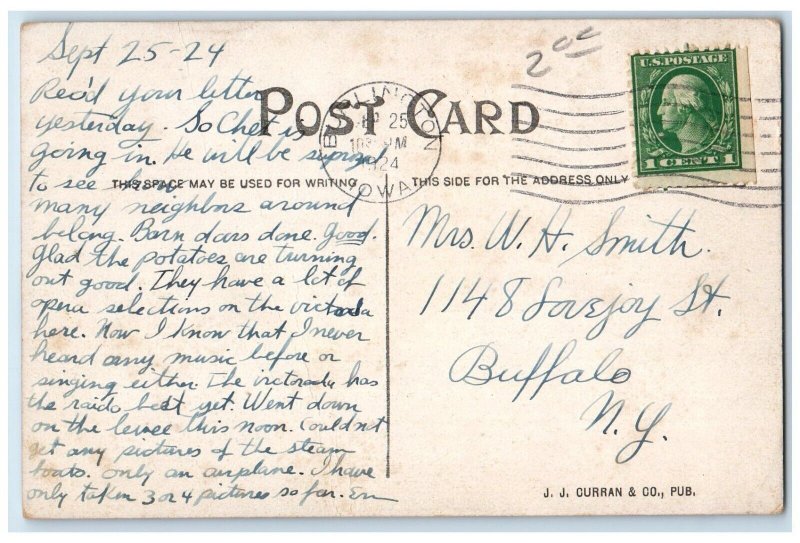 Sept 25-24
Rec'd your letter
yesterday. So Chet is
going in. He will be surprised
to see how
many neighbors around
belong. Barn doors done. good.
Glad the potatoes are turning
out good. They have a lot of
opera selections on the victrola
here. Now I know that I never
heard any music before or
singing either. The victorola has
the raido beat yet. Went down
on the levee this noon. Could not
get any pictures of the steam
boats. only an airplane. I have
only taken 3 or 4 pictures so far. Em
POST CARD
THIS SPACE MAY BE USED FOR WRITING
THIS SIDE FOR THE ADDRESS ONLY
BURLINGTON
SEP 25
PM
1924
IOWA
2.00
U.S. POSTAGE
1 CENT 1
Mrs. W. H. Smith.
1148 Lovejoy St.
Buffalo
N.Y.
J. J. CURRAN & CO., PUB.